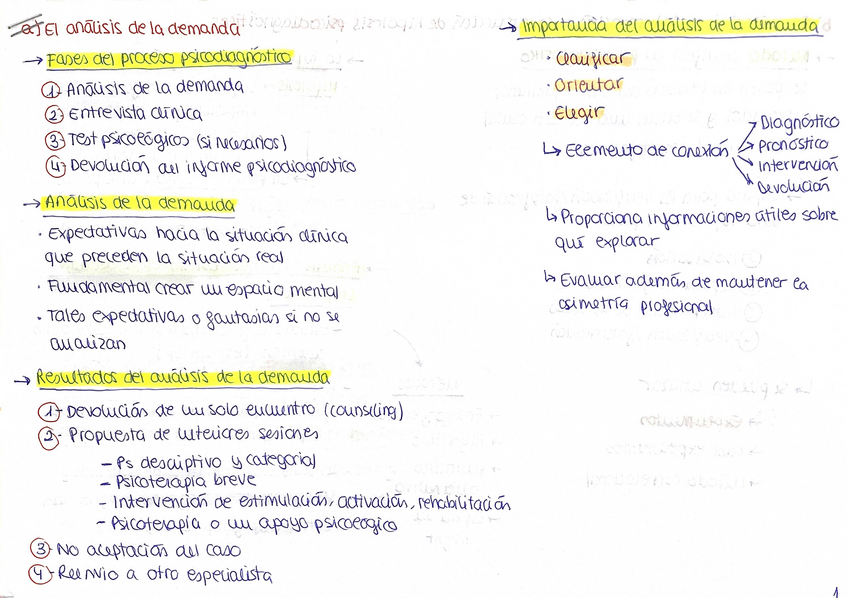 a) El análisis de la demanda
→ Fases del proceso psicodiagnóstico
1- Análisis de la demanda
2- Entrevista clínica
3- Test psicológicos (si necesarios)
4- Devolución del informe psicodiagnóstico
→ Análisis de la demanda
· Expectativas hacia la situación clínica
que preceden la situación real
· Fundamental crear un espacio mental
· Tales expectativas o fantasias si no se
analizan
→ Resultados del análisis de la demanda
1- Devolución de un solo encuentro (counsiling)
2- Propuesta de ulteriores sesiones
- Ps descriptivo y categorial
- Psicoterapia breve
- Intervención de estimulación, activación, rehabilitación
- Psicoterapia o un apoyo psicológico
3- No aceptación del caso
4- Reenvio a otro especialista
→ Importancia del análisis de la demanda
· Clarificar
· Orientar
· Elegir
↳ Elemento de conexión
→ Diagnóstico
→ Pronóstico
→ Intervención
→ Devolución
↳ Proporciona informaciones útiles sobre
qué explorar
↳ Evaluar además de mantener la
asimetría profesional
1